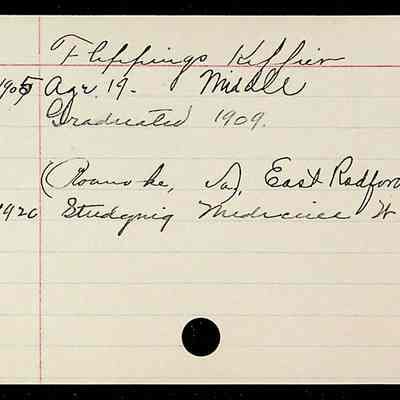 Flippings Kiffier
1905 Age 19. Middle
Graduated 1909.
(Roanoke, Va), East Radford
1920 Studying Medicine W